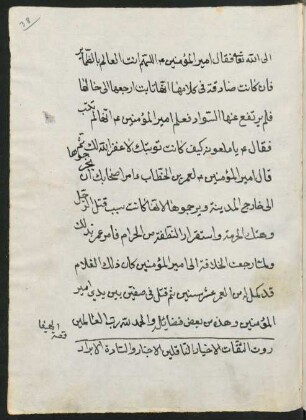 ٣٨
الى الله تعالى فقال امير المؤمنين ع اللهم انت العالم بانها
فان كانت صادقة في كلامها انها تابت ارجعها الى خالها
فلم يرتفع عنها السواد فعلم امير المؤمنين ع انها لم تتب
فقال ع يا ملعونة كيف كانت توبتك لا غفر الله لك ثم
قال امير المؤمنين ع لعمر بن الخطاب ءامر اصحابك ان
الى خارج المدينة ويرجموها لانها كانت سبب قتل الرجل
وهتك الحرمة واستقرار النطفة من الحرام فامر عمر بذلك
ولما رجعت الخلافة الى امير المؤمنين كان ذلك الغلام
قد كمل له من العمر عشر سنين ثم قتل في صفين بين يدي امير
المؤمنين وهذه من بعض فضايله والحمد لله رب العالمين
قصة
روت الثقات للاخبار الناقلين الاخيار والسادة الابرار